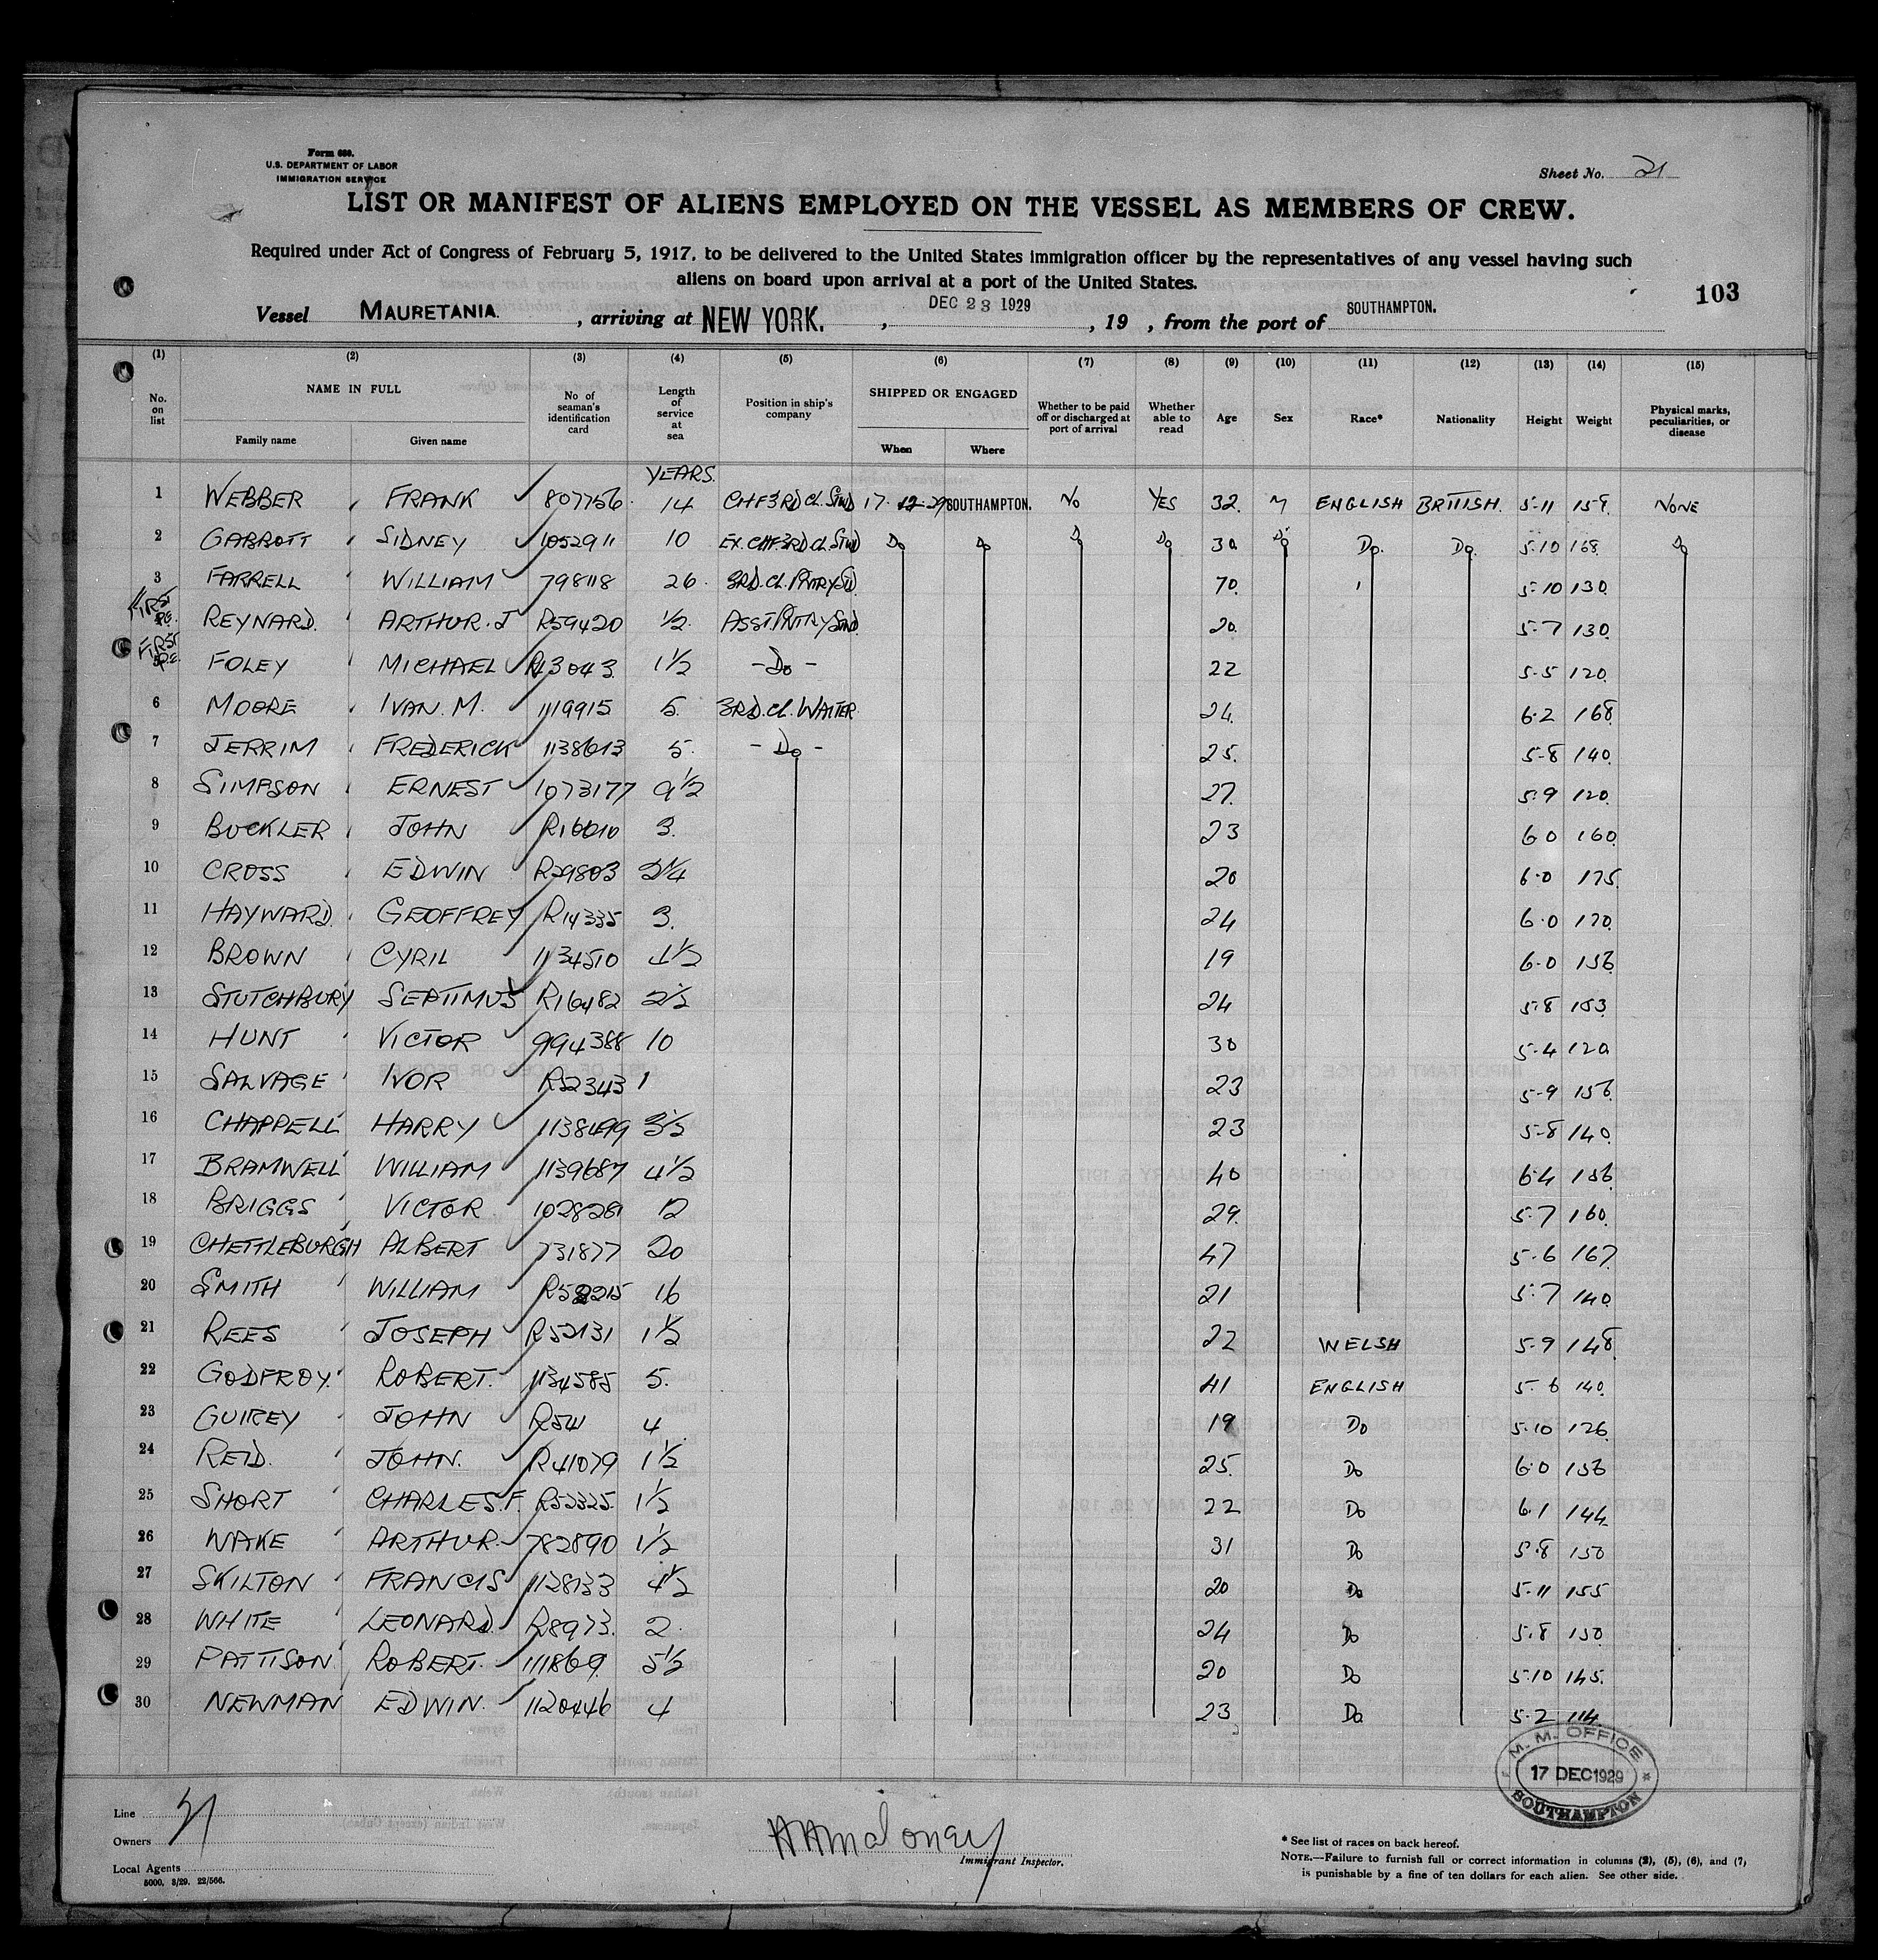 Form 680.
U.S. DEPARTMENT OF LABOR
IMMIGRATION SERVICE
Sheet No. 21
LIST OR MANIFEST OF ALIENS EMPLOYED ON THE VESSEL AS MEMBERS OF CREW.
Required under Act of Congress of February 5, 1917, to be delivered to the United States immigration officer by the representatives of any vessel having such
aliens on board upon arrival at a port of the United States.
103
Vessel MAURETANIA. , arriving at NEW YORK. , DEC 23 1929 , 19 , from the port of SOUTHAMPTON.
(1) (2) (3) (4) (5) (6) (7) (8) (9) (10) (11) (12) (13) (14) (15)
No. on list NAME IN FULL Family name Given name No of seaman's identification card Length of service at sea Position in ship's company SHIPPED OR ENGAGED When Where Whether to be paid off or discharged at port of arrival Whether able to read Age Sex Race* Nationality Height Weight Physical marks, peculiarities, or disease
YEARS.
1 WEBBER FRANK 807756 14 CHF 3RD CL. STWD 17-12-29 SOUTHAMPTON. NO YES 32. M ENGLISH BRITISH. 5-11 159. NONE
2 GABBOTT SIDNEY 1052911 10 EX. CHF. 3RD CL. STWD Do Do Do Do 30 Do Do. Do. 5-10 168 Do
3 FARRELL WILLIAM 798118 26 3RD. CL. PNTRY SD. 70. 5-10 130.
FIRST REYNARD. ARTHUR. J R59420 1/2. ASST. PNTRY STWD. 20. 5-7 130.
FIRST FOLEY MICHAEL R13043. 1 1/2 - Do - 22 5-5 120.
6 MOORE IVAN. M. 1119915 5. 3RD. CL. WAITER. 24. 6-2 168
7 JERRIM FREDERICK 1138613 5. - Do - 25. 5-8 140.
8 SIMPSON ERNEST 1073177 9 1/2 27. 5-9 120.
9 BUCKLER JOHN R16010 3. 23 6 0 160.
10 CROSS EDWIN R29803 2 1/4 20 6-0 175.
11 HAYWARD. GEOFFREY R14335 3. 24 6-0 170.
12 BROWN CYRIL 1134510 4 1/2 19 6-0 156
13 STUTCHBURY SEPTIMUS R16482 2 1/2 24 5-8 153
14 HUNT VICTOR 994388 10 30 5-4 120
15 SALVAGE IVOR R52343 1 23 5-9 156
16 CHAPPELL HARRY 3 1/2 23 5-8 140.
17 BRAMWELL WILLIAM 1139687 4 1/2 40 6-4 156
18 BRIGGS VICTOR 1028281 12 29. 5-7 160.
19 CHETTLEBURGH ALBERT 731877 20 47 5-6 167
20 SMITH WILLIAM 16 21 5-7 140
21 REES JOSEPH R52131 1 1/2 22 WELSH 5-9 148
22 GODFROY. ROBERT. 1134585 5. 41 ENGLISH 5-6 140.
23 GUIREY JOHN R541 4 19 Do 5-10 126
24 REID. JOHN. R41079 1 1/2 25. Do 6-0 156
25 SHORT CHARLES. F. R52325. 1 1/2 22 Do 6-1 144
26 WAKE ARTHUR. 782890 1 1/2 31 Do 5-8 150
27 SKILTON FRANCIS 1128133 4 1/2 20 Do 5-11 155
28 WHITE LEONARD. R8973. 2. 24 Do 5-8 150
29 PATTISON ROBERT. 111869. 5 1/2 20 Do 5-10 145.
30 NEWMAN EDWIN. 1120446 4 23 Do. 5-2 114.
M. M. OFFICE
17 DEC 1929
SOUTHAMPTON
Line
Owners
Local Agents
5000. 3/29. 22/566.
Immigrant Inspector.
* See list of races on back hereof.
NOTE.—Failure to furnish full or correct information in columns (2), (5), (6), and (7),
is punishable by a fine of ten dollars for each alien. See other side.